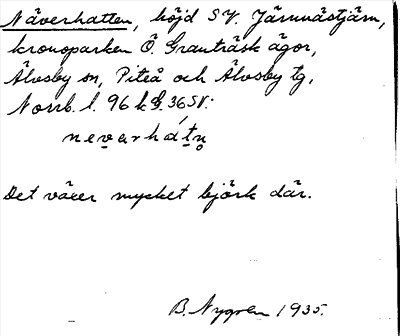 Näverhatten, höjd S.V. Järnnästjärn,
kronoparken Ö Granträsk ägor,
Älvsby sn, Piteå och Älvsby tg,
Norrb. l. 96 k G. 36 SV.
nevarhátn
Det växer mycket björk där.
B. Nygren 1935.